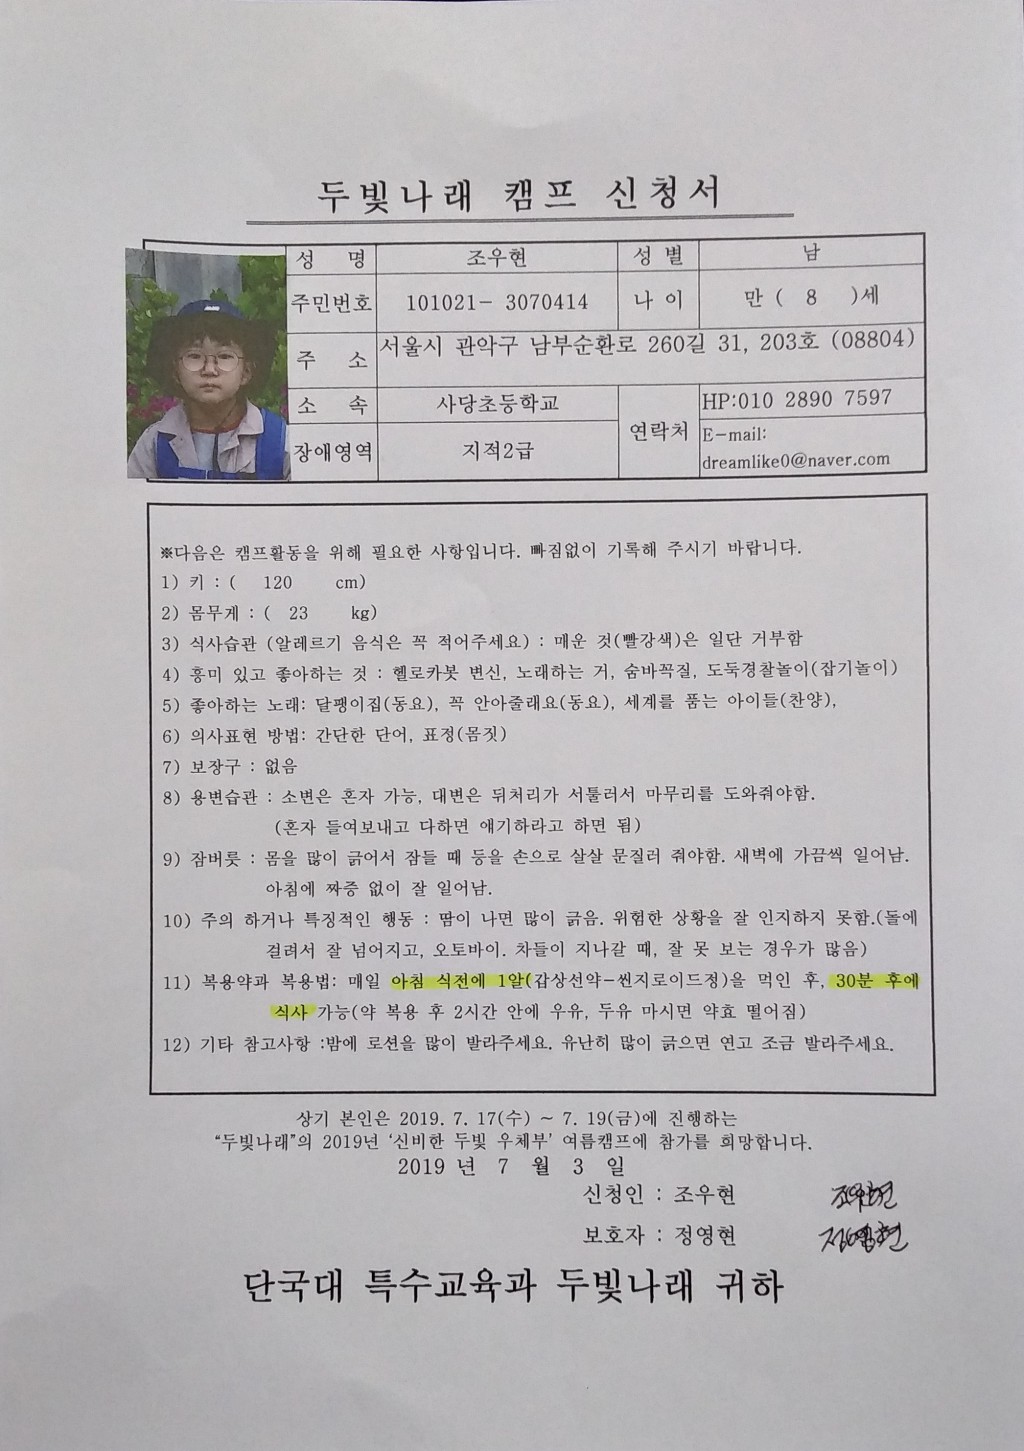 두빛나래 캠프 신청서
성 명 조우현 성 별 남
주민번호 101021- 3070414 나 이 만 ( 8 )세
주 소 서울시 관악구 남부순환로 260길 31, 203호 (08804)
소 속 사당초등학교 연락처 HP:010 2890 7597
장애영역 지적2급 E-mail:
dreamlike0@naver.com
※다음은 캠프활동을 위해 필요한 사항입니다. 빠짐없이 기록해 주시기 바랍니다.
1) 키 : ( 120 cm)
2) 몸무게 : ( 23 kg)
3) 식사습관 (알레르기 음식은 꼭 적어주세요) : 매운 것(빨강색)은 일단 거부함
4) 흥미 있고 좋아하는 것 : 헬로카봇 변신, 노래하는 거, 숨바꼭질, 도둑경찰놀이(잡기놀이)
5) 좋아하는 노래: 달팽이집(동요), 꼭 안아줄래요(동요), 세계를 품는 아이들(찬양),
6) 의사표현 방법: 간단한 단어, 표정(몸짓)
7) 보장구 : 없음
8) 용변습관 : 소변은 혼자 가능, 대변은 뒤처리가 서툴러서 마무리를 도와줘야함.
(혼자 들여보내고 다하면 얘기하라고 하면 됨)
9) 잠버릇 : 몸을 많이 긁어서 잠들 때 등을 손으로 살살 문질러 줘야함. 새벽에 가끔씩 일어남.
아침에 짜증 없이 잘 일어남.
10) 주의 하거나 특징적인 행동 : 땀이 나면 많이 긁음. 위험한 상황을 잘 인지하지 못함.(돌에
걸려서 잘 넘어지고, 오토바이. 차들이 지나갈 때, 잘 못 보는 경우가 많음)
11) 복용약과 복용법: 매일 아침 식전에 1알(갑상선약-씬지로이드정)을 먹인 후, 30분 후에
식사 가능(약 복용 후 2시간 안에 우유, 두유 마시면 약효 떨어짐)
12) 기타 참고사항 :밤에 로션을 많이 발라주세요. 유난히 많이 긁으면 연고 조금 발라주세요.
상기 본인은 2019. 7. 17(수) ~ 7. 19(금)에 진행하는
“두빛나래”의 2019년 ‘신비한 두빛 우체부’ 여름캠프에 참가를 희망합니다.
2019 년 7 월 3 일
신청인 : 조우현 조우현
보호자 : 정영현 정영현
단국대 특수교육과 두빛나래 귀하